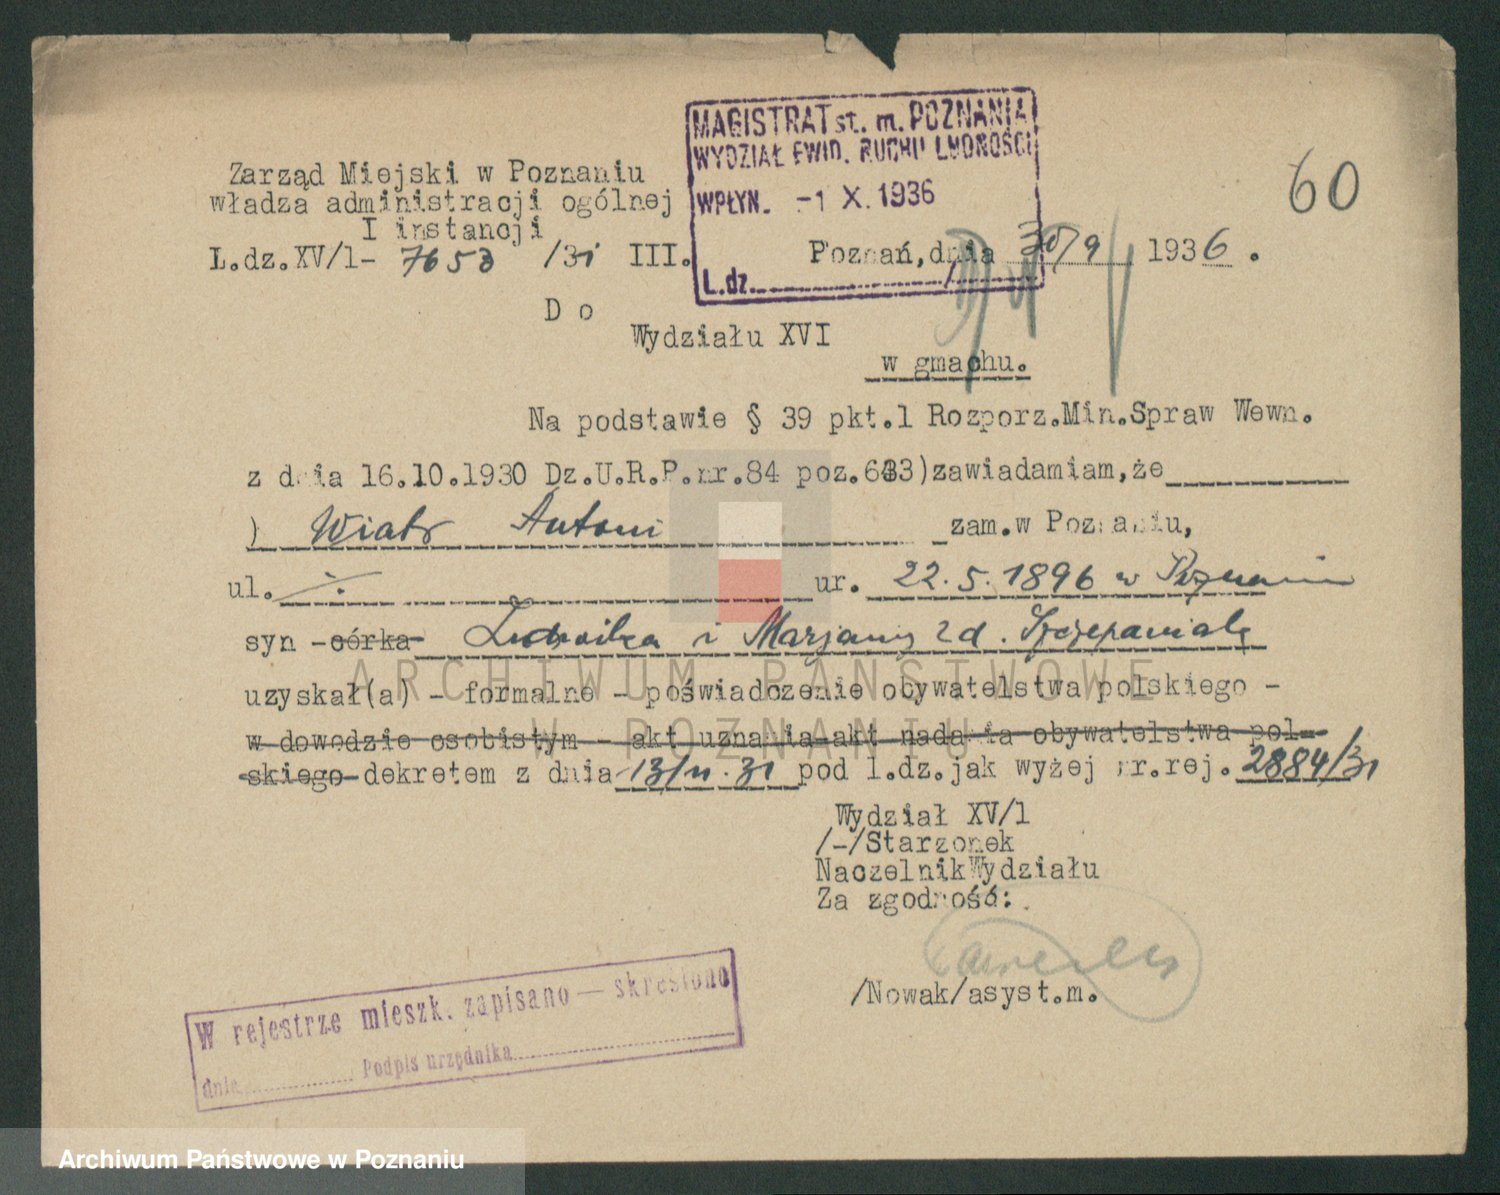 MAGISTRAT st. m. POZNANIA
WYDZIAŁ EWID. RUCHU LUDNOŚCI
WPŁYN. -1 X. 1936
L.dz.
60
Zarząd Miejski w Poznaniu
władza administracji ogólnej
I instancji
L.dz.XV/1- 7653 /31 III.
Poznań, dnia 30/9 1936.
D o
Wydziału XVI
w gmachu.
Na podstawie § 39 pkt.1 Rozporz.Min.Spraw Wewn.
z dnia 16.10.1930 Dz.U.R.P.nr.84 poz.633)zawiadamiam,że
) Wiatr Antoni zam.w Poznaniu,
ul. ur. 22.5.1896 w Poznaniu
syn -córka- Ludwika i Marjanny zd. Szczepaniak
uzyskał(a) - formalne - poświadczenie obywatelstwa polskiego -
w dowodzie osobistym - akt uznania-akt nadania obywatelstwa pol-
skiego-dekretem z dnia 13/11.31 pod l.dz.jak wyżej nr.rej. 2884/31
Wydział XV/1
/-/Starzonek
Naczelnik Wydziału
Za zgodność:
/Nowak/asyst.m.
W rejestrze mieszk. zapisano — skreślono
dnia Podpis urzędnika
ARCHIWUM PAŃSTWOWE
W POZNANIU
Archiwum Państwowe w Poznaniu